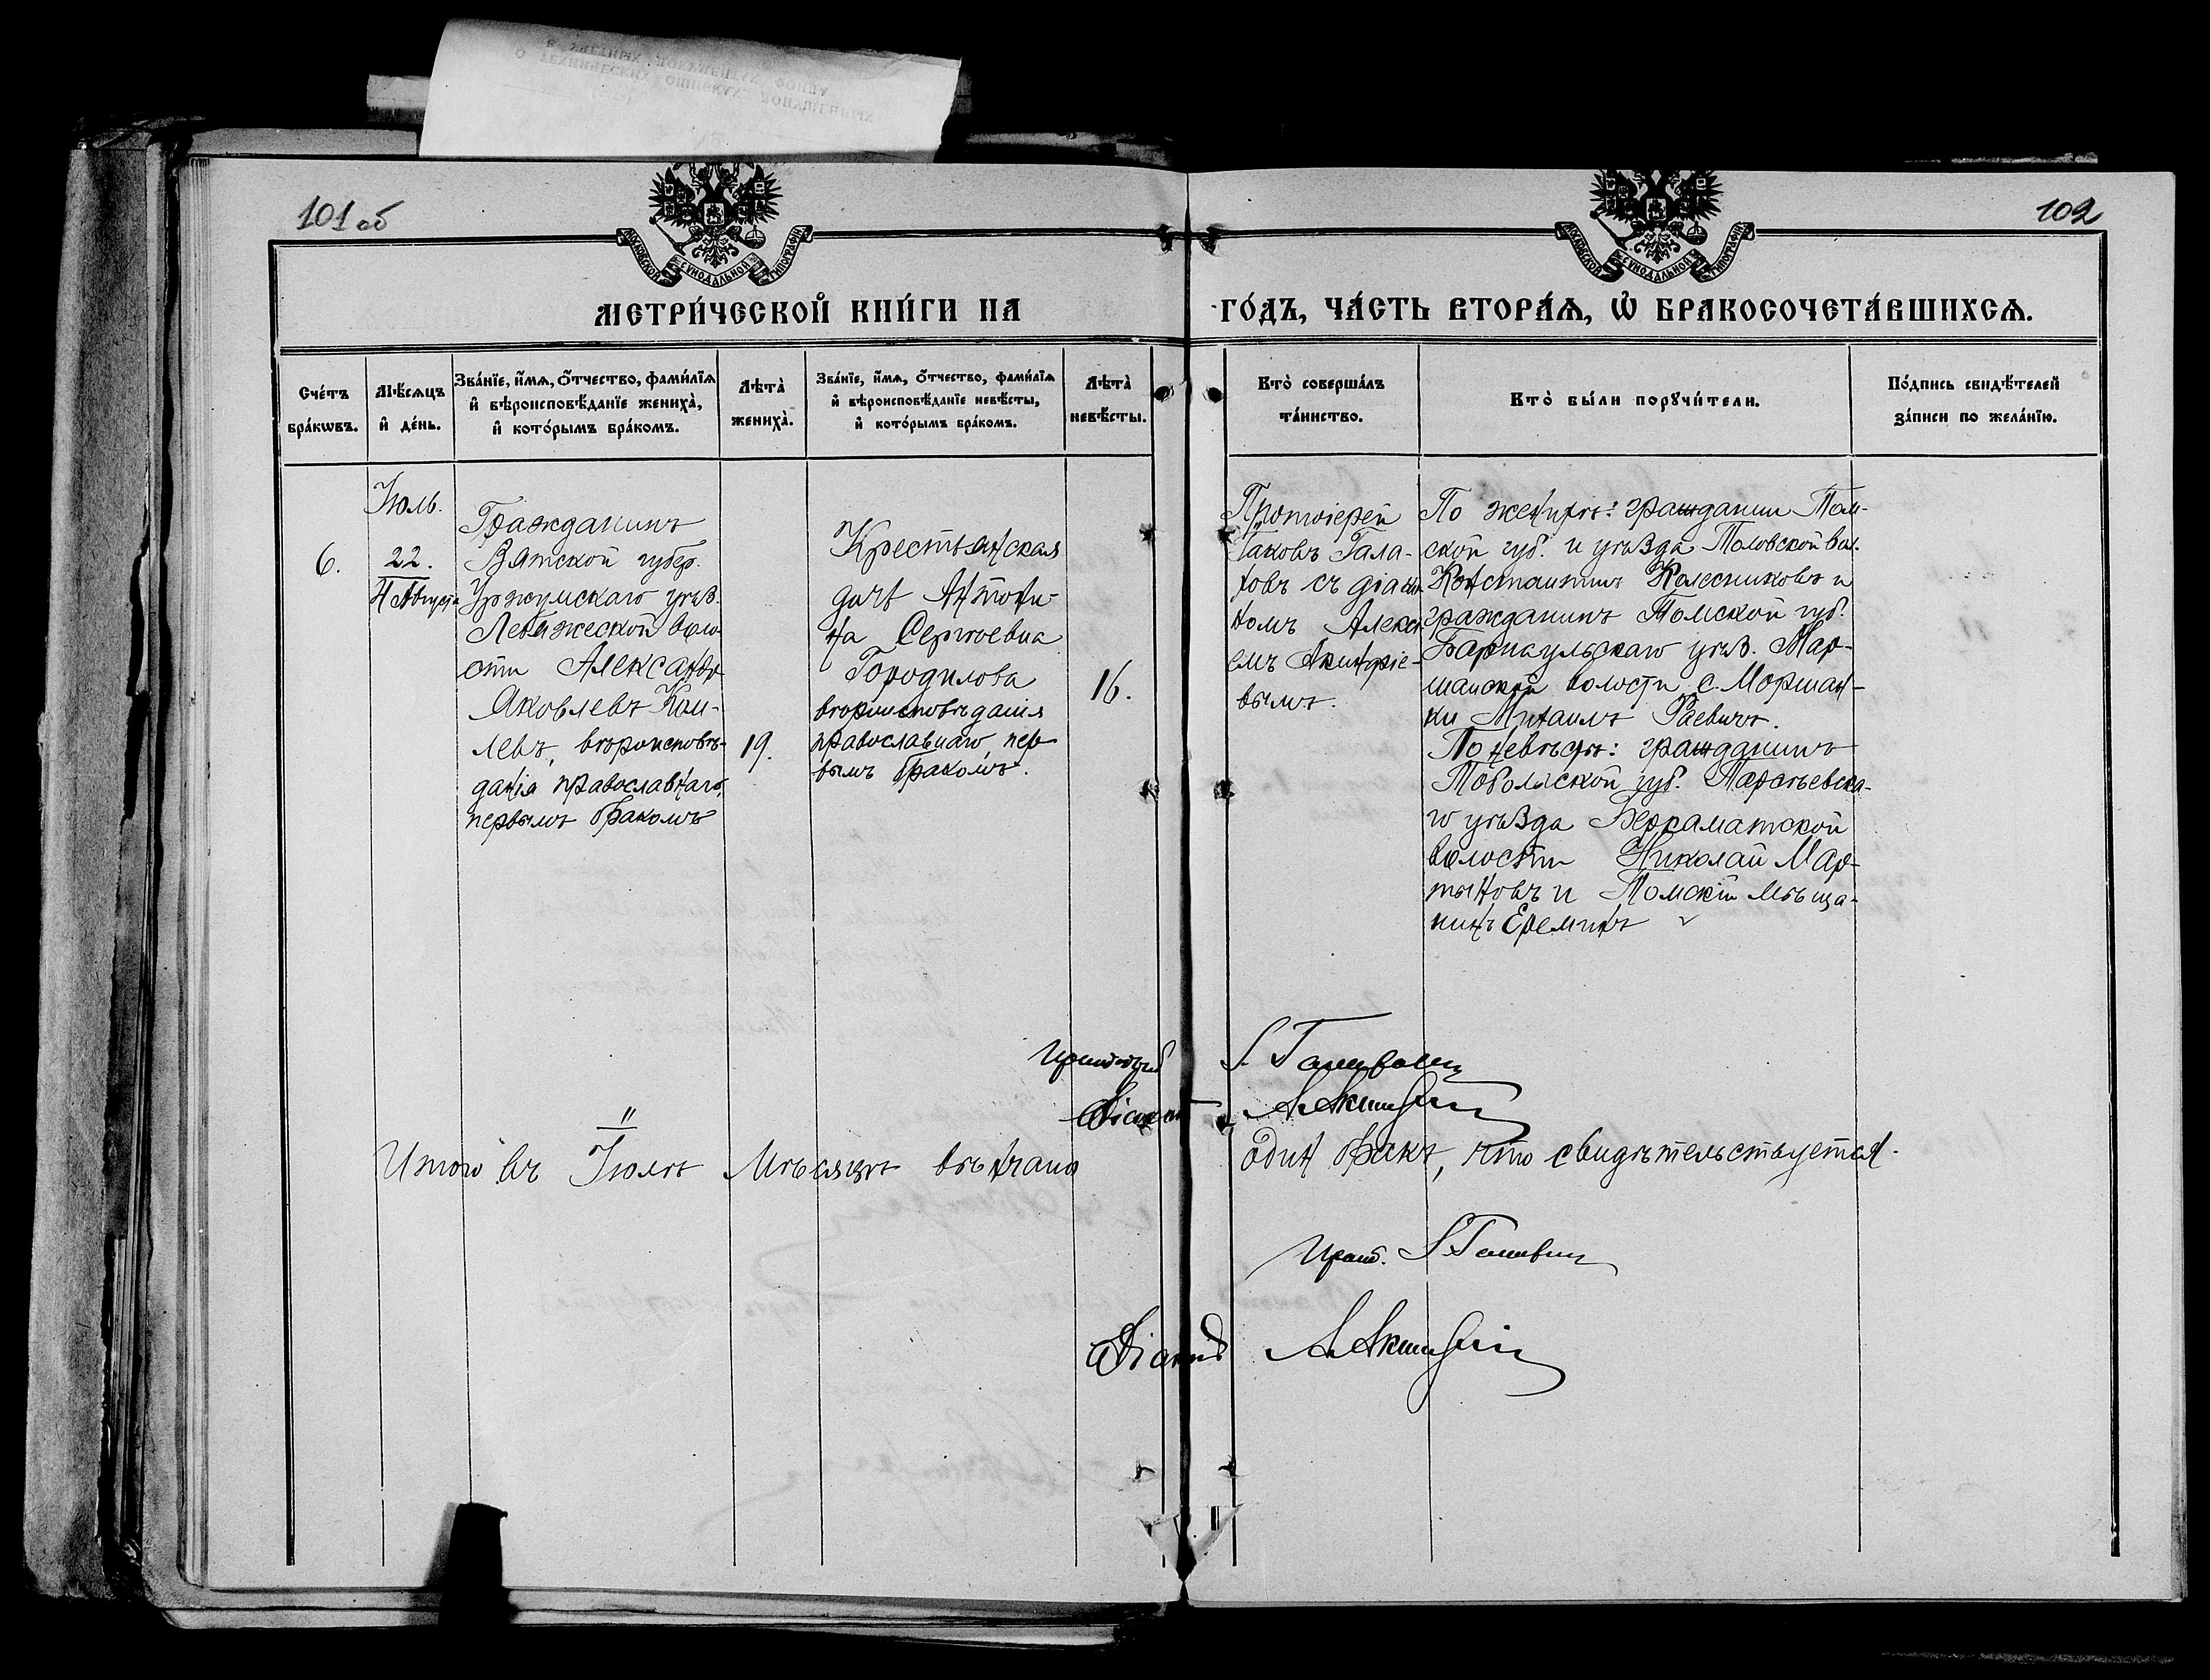 101 об
102
МЕТРИ́ЧЕСКОЙ КНИ́ГИ НА
ГО́ДЪ, ЧА́СТЬ ВТОРА́Ѧ, Ѡ҆ БРАКОСОЧЕТА́ВШИХСѦ.
МОСКОВСКОЙ СѴНОДАЛЬНОЙ ТИПОГРАФІИ
МОСКОВСКОЙ СѴНОДАЛЬНОЙ ТИПОГРАФІИ
Сче́тъ
бра́кѡвъ.
Мѣ́сѧцъ
и҆ де́нь.
Зва́нїе, и҆́мѧ, ѻ҆́тчество, фами́лїѧ
и҆ вѣроисповѣ́данїе жениха̀,
и҆ кото́рымъ бра́комъ.
Лѣта̀
жениха̀.
Зва́нїе, и҆́мѧ, ѻ҆́тчество, фами́лїѧ
и҆ вѣроисповѣ́данїе невѣ́сты,
и҆ кото́рымъ бра́комъ.
Лѣта̀
невѣ́сты.
Кто̀ соверша́лъ
та́инство.
Кто̀ бы́ли порꙋчи́тели.
По́дпись свидѣ́телей
за́писи по жела́нїю.
6.
Іюль.
22.
4 Августа
Гражданинъ
Вятской губер.
Уржумскаго уѣз.
Лебяжеской воло-
сти Александръ
Яковлевъ Ком-
левъ, вѣроисповѣ-
данія православнаго,
первымъ бракомъ
19.
Крестьянская
дочь Антони-
на Сергѣевна
Городилова
вѣроисповѣданія
православнаго, пер
вымъ бракомъ.
16.
Протоіерей
Іаковъ Гала-
ховъ съ діако
номъ Алексѣ
емъ Акинфіе-
вымъ.
По женихѣ: гражданин Том-
ской губ. и уѣзда Поповской вол.
Константинъ Колесниковъ и
гражданинъ Томской губ.
Барнаульскаго уѣз. Мар-
шанской волости с. Моршан-
ки Михаилъ Раевичъ.
По невѣстѣ: гражданинъ
Тобольской губ.
го уѣзда
волости Николай Мар-
тыновъ и Томскій мѣща-
нинъ Ереминъ
Протоіерей
І. Галаховъ
Діаконъ
А. Акинфіевъ
"
Итого въ Іюлѣ мѣсяцѣ вѣнчано
один бракъ, что свидѣтельствуется.
Прот. І. Галаховъ
Діаконъ
А. Акинфіевъ